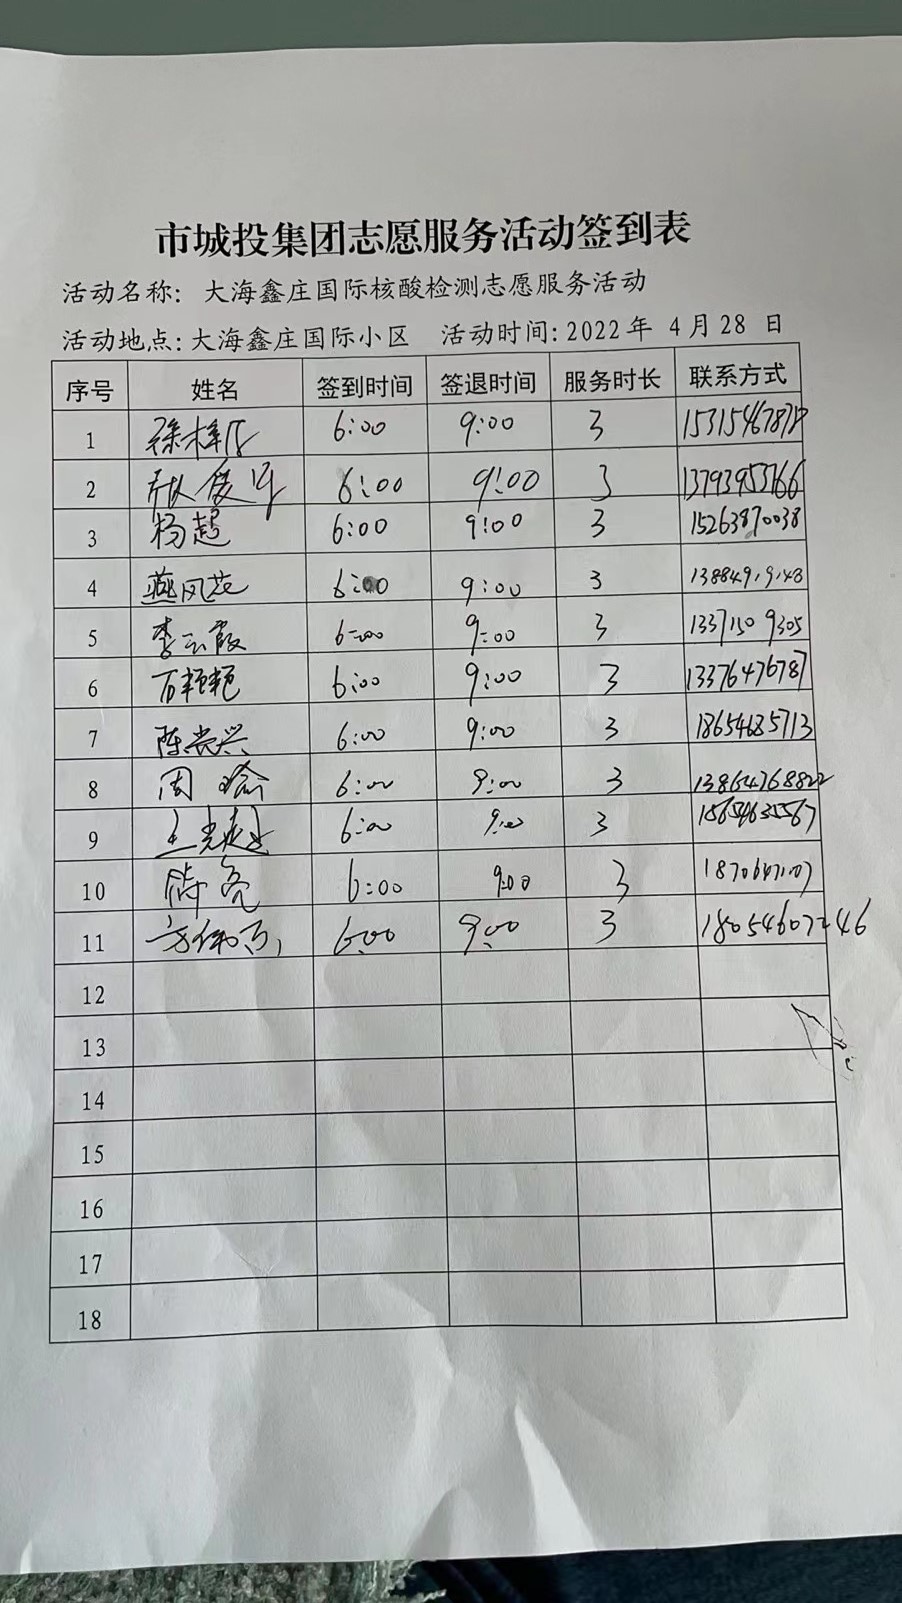 市城投集团志愿服务活动签到表
活动名称: 大海鑫庄国际核酸检测志愿服务活动
活动地点: 大海鑫庄国际小区 活动时间: 2022年 4月28 日
序号 姓名 签到时间 签退时间 服务时长 联系方式
1 6:00 9:00 3
2 6:00 9:00 3 13793953766
3 杨超 6:00 9:00 3 15263870038
4 燕凤花 6:00 9:00 3
5 李云霞 6:00 9:00 3 13371509305
6 万艳艳 6:00 9:00 3 13376476787
7 陈常兴 6:00 9:00 3 18654685713
8 周瑜 6:00 9:00 3 13864768822
9 6:00 9:00 3
10 6:00 9:00 3
11 6:00 9:00 3 18054607246
12
13
14
15
16
17
18